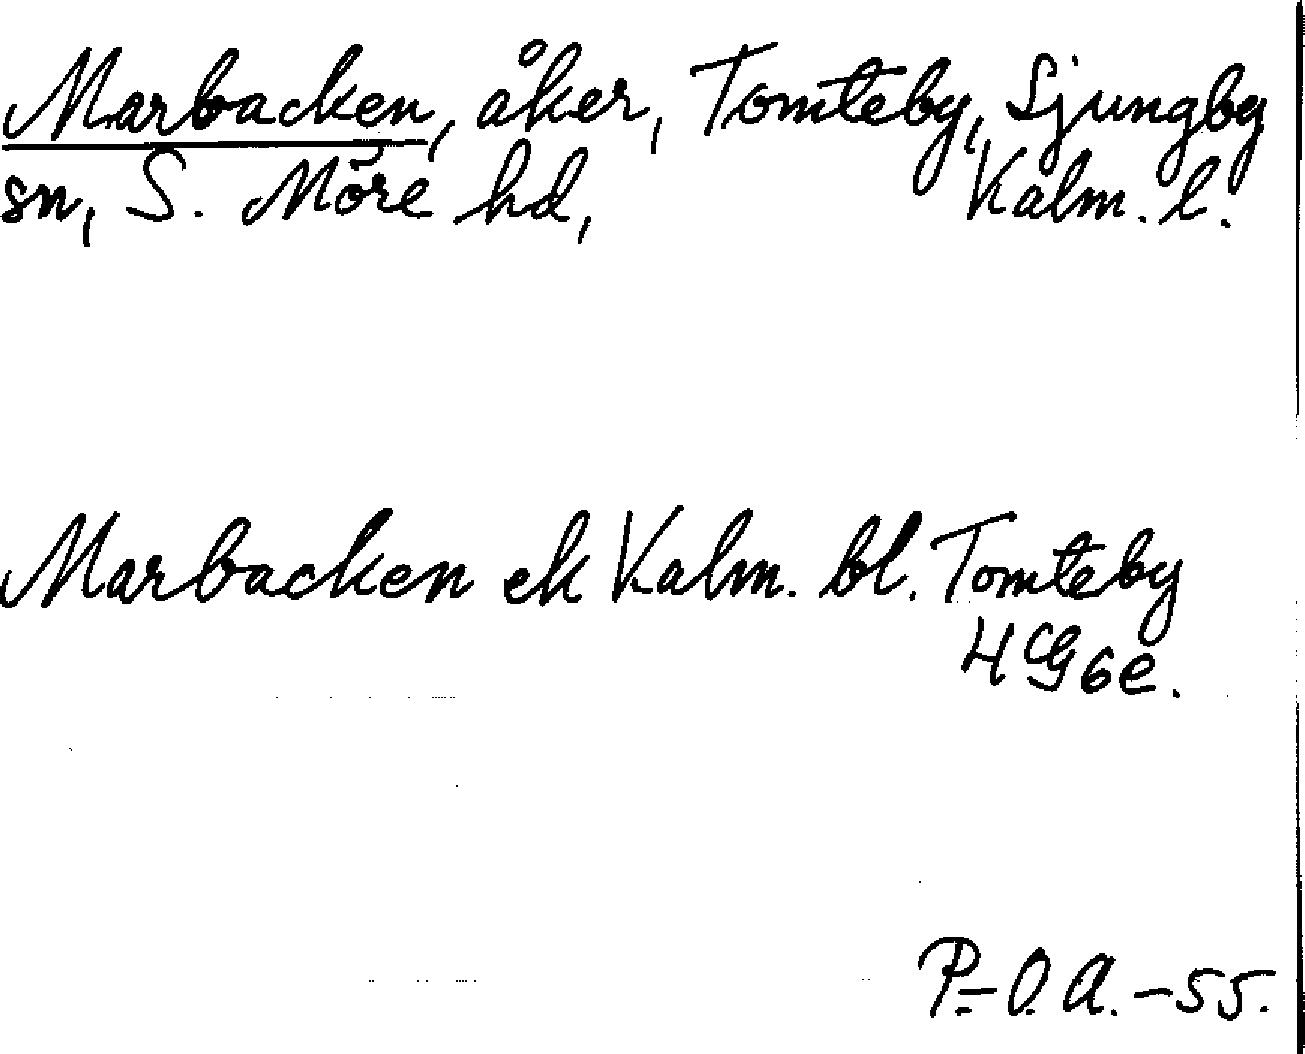 Marbacken, åker, Tomteby, Ljungby
sn, S. Möre hd, Kalm. l.
Marbacken ek Kalm. bl. Tomteby
4 G 6e.
P.-O. A. -55.